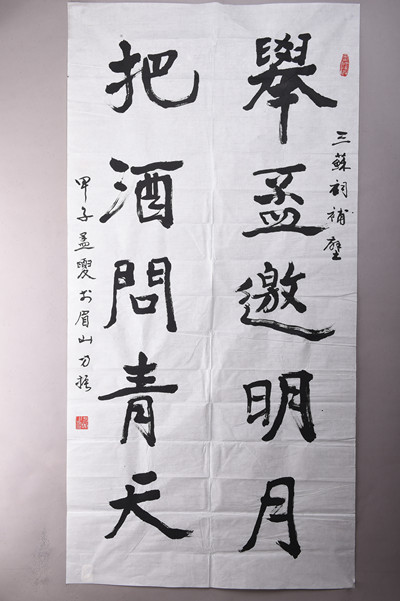 三蘇祠補壁
舉盃邀明月
把酒問青天
甲子孟夏於眉山